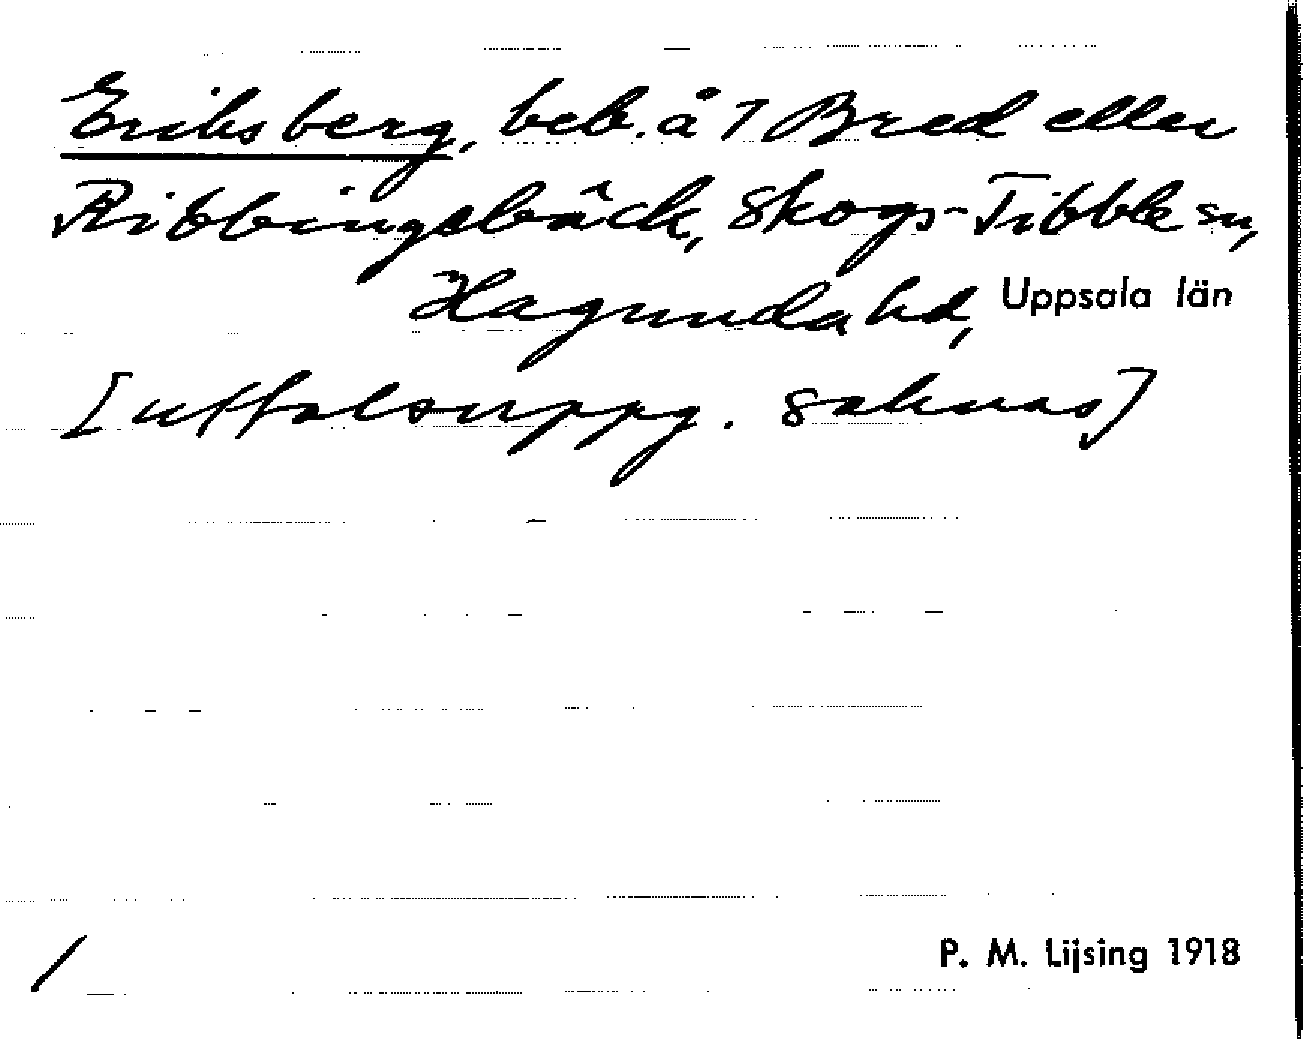 Eriksberg, beb. å 7 Bred eller
Ribbingsbäck, Skogs-Tibble sn,
Hagunda hd, Uppsala län
[uttalsuppg. saknas]
P. M. Lijsing 1918